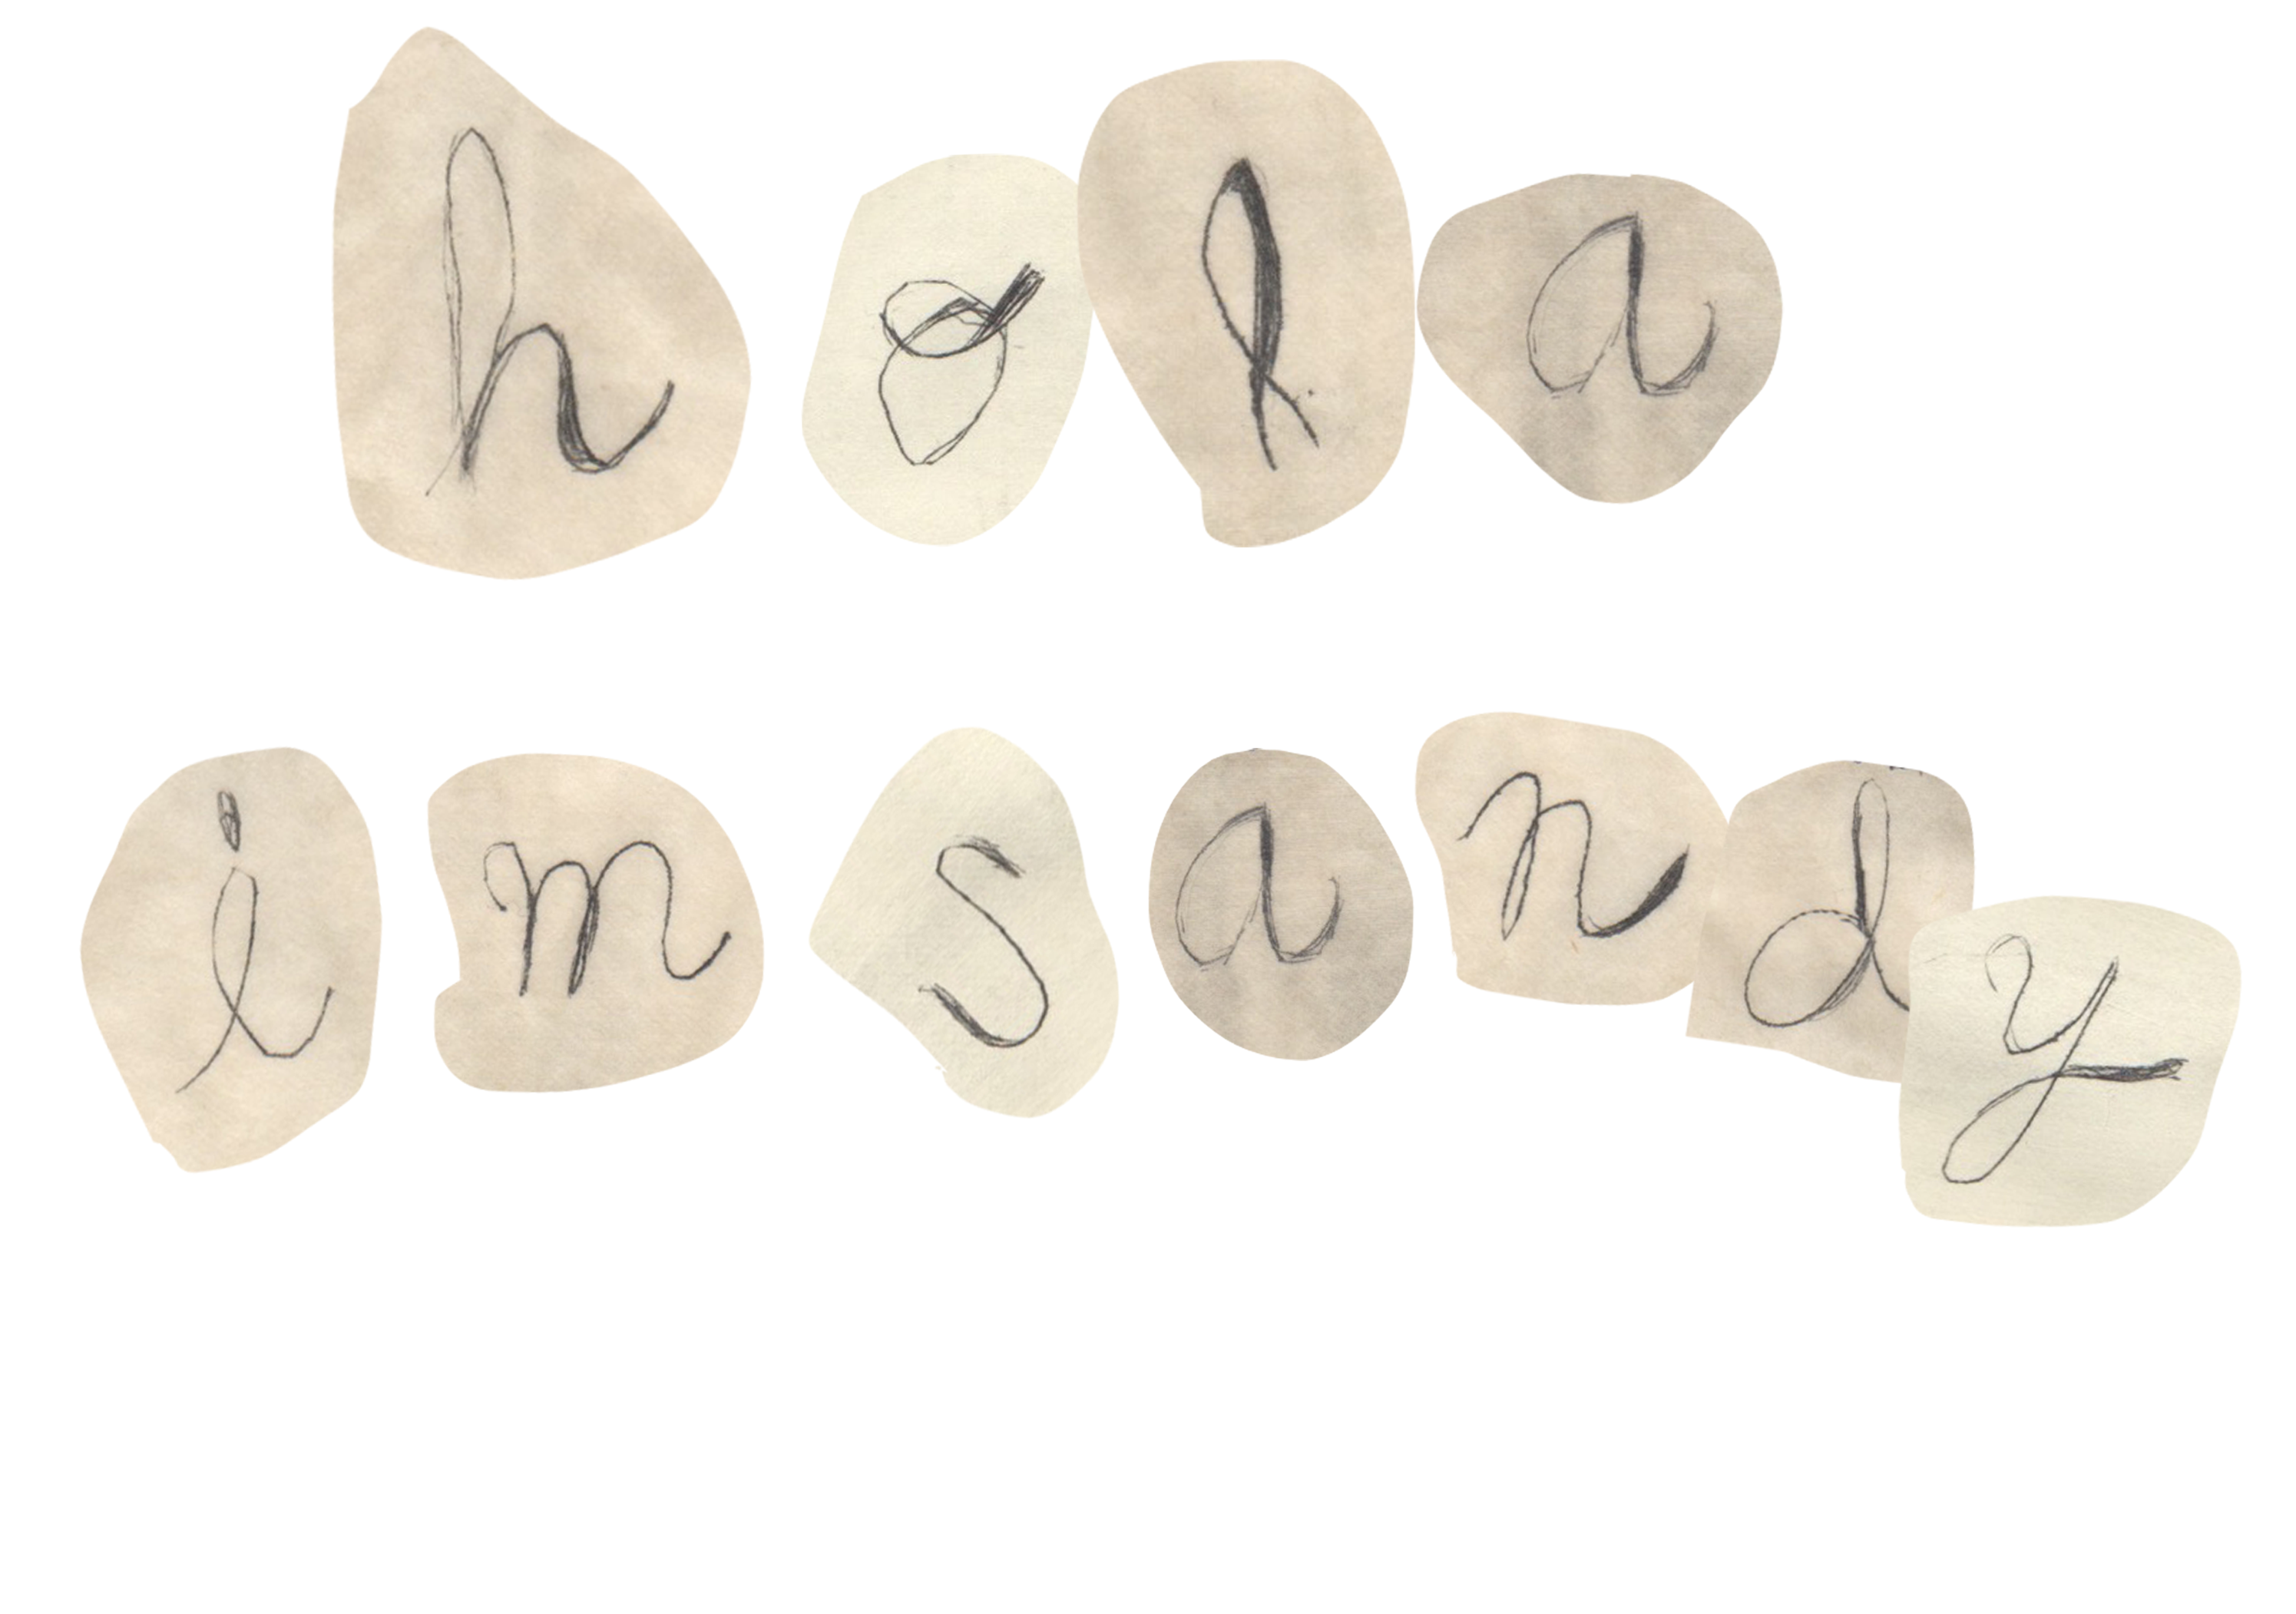 hola
im sandy